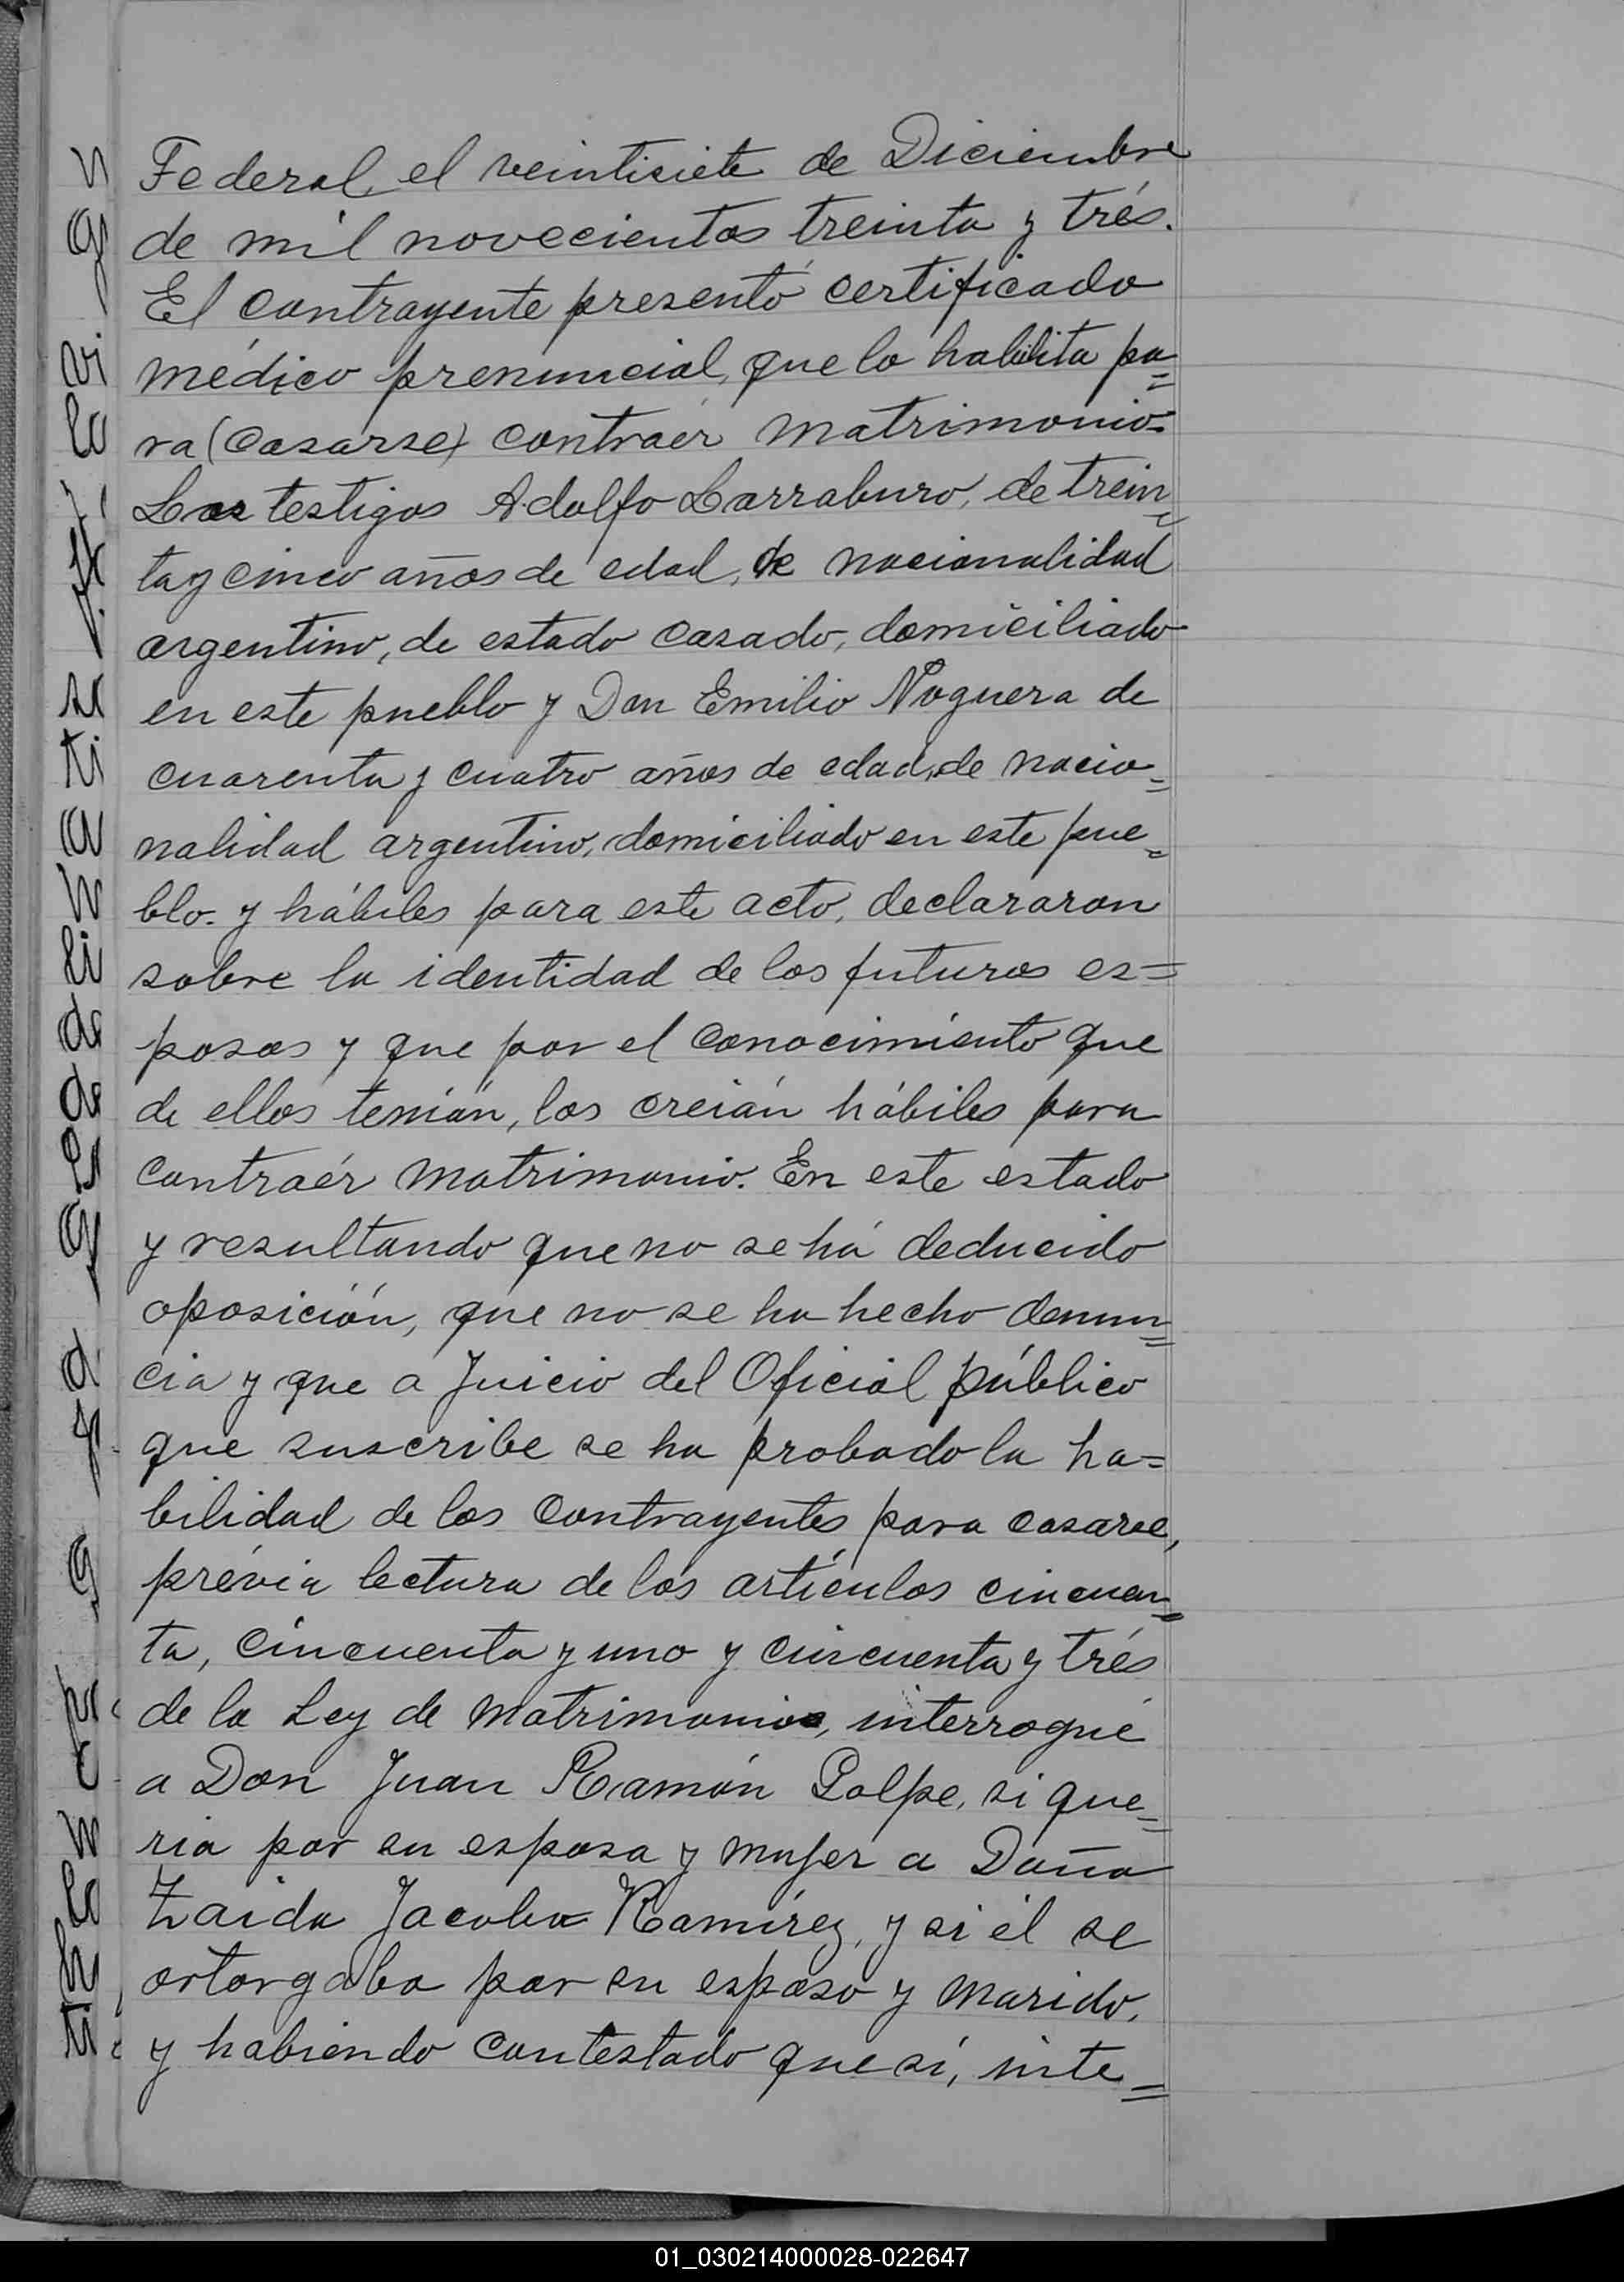 Federal, el veintisiete de Diciembre
de mil novecientos treinta y trés.
El contrayente presentó certificado
médico prenuncial, que lo habilita pa=
ra (casarse) contraér matrimonio.
Los testigos Adolfo Larraburo, de trein=
ta y cinco años de edad, de nacionalidad
argentino, de estado casado, domiciliado
en este pueblo y Don Emilio Noguera de
cuarenta y cuatro años de edad, de nacio=
nalidad argentino, domiciliado en este pue=
blo. y hábiles para este acto, declararon
sobre la identidad de los futuros es=
posos y que por el conocimiento que
de ellos tenián, los creián hábiles para
contraér matrimonio. En este estado
y resultando que no se há deducido
oposición, que no se ha hecho denun=
cia y que a Juicio del Oficial público
que suscribe se ha probado la ha=
bilidad de los contrayentes para casarse,
prévia lectura de los artículos cincuen=
ta, cincuenta y uno y cincuenta y trés
de la Ley de Matrimonio, interrogué
a Don Juan Ramón Golpe, si que=
ria por su esposa y mujer a Doña
Zaida Jacoba Ramírez, y si él se
ortorgaba por su esposo y marido,
y habiendo contestado que sí, inte=
01_030214000028-022647